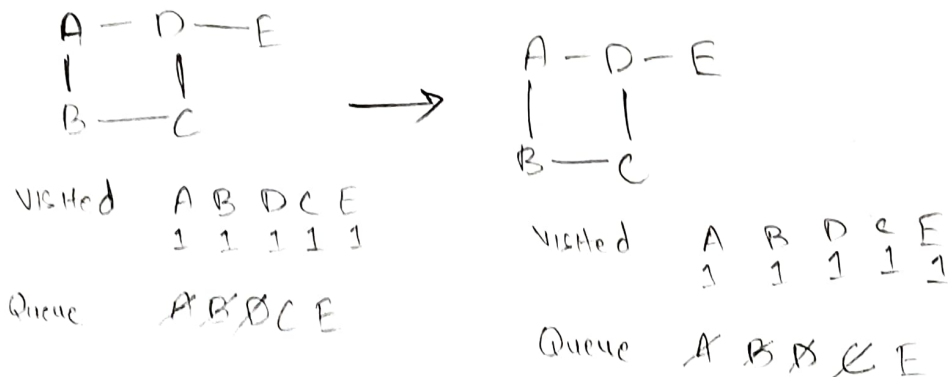 A — D — E
B — C
Visited A B D C E
1 1 1 1 1
Queue A B D C E
A — D — E
B — C
Visited A B D C E
1 1 1 1 1
Queue A B D C E